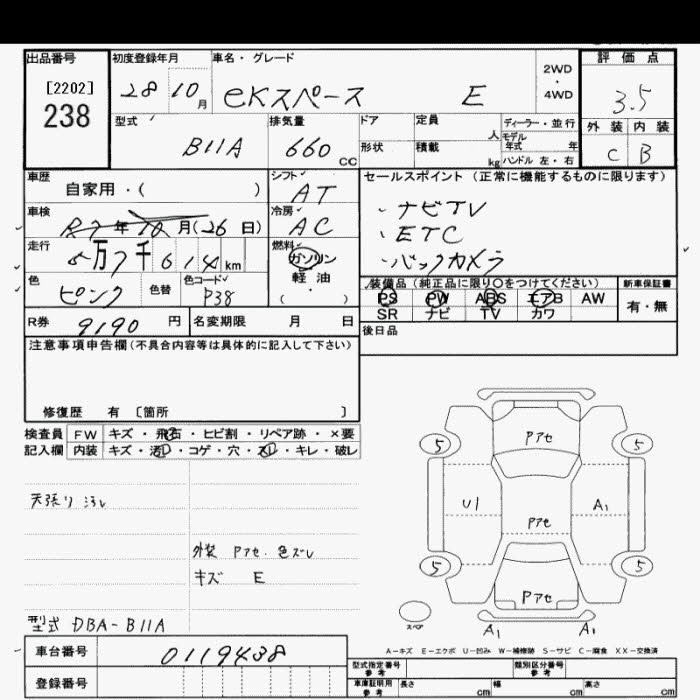 出品番号 初度登録年月 車名・グレード 2WD・4WD 評価点
[2202]
238
28 10月 eKスペース E 3.5
型式 排気量 ドア 定員 人 ディーラー・並行 外装 内装
B11A 660 CC 形状 積載 kg モデル年式 年 C B
ハンドル 左・右
車歴 シフト セールスポイント (正常に機能するものに限ります)
自家用・( ) AT
・ナビTV
車検 冷房
R7年10月(26日) AC
・ETC
走行 燃料
万7千614km ガソリン
・バックカメラ
軽油
( ・ )
色 色替 色コード
ピンク P38
装備品 (純正品に限り○をつけてください) 新車保証書
PS PW ABS エアB AW 有・無
SR ナビ TV カワ
R券 9190円 名変期限 月 日
後日品
注意事項申告欄(不具合内容等は具体的に記入して下さい)
修復歴 有 〔箇所 〕
検査員 FW キズ・飛石・ヒビ割・リペア跡・×要
記入欄 内装 キズ・汚レ・コゲ・穴・スレ・キレ・破レ
天張り汚レ
外装 Pアセ. 色ズレ
キズ E
型式 DBA-B11A
Pアセ
5 5
U1 A1
Pアセ
5 5
Pアセ
スペア
A1 A1
A-キズ E-エクボ U-凹み W-補修跡 S-サビ C-腐食 XX-交換済
車台番号 0119438
登録番号
型式指定番号 参考 類別区分番号 参考
車庫証明用 参考 長さ cm 幅 cm 高さ cm